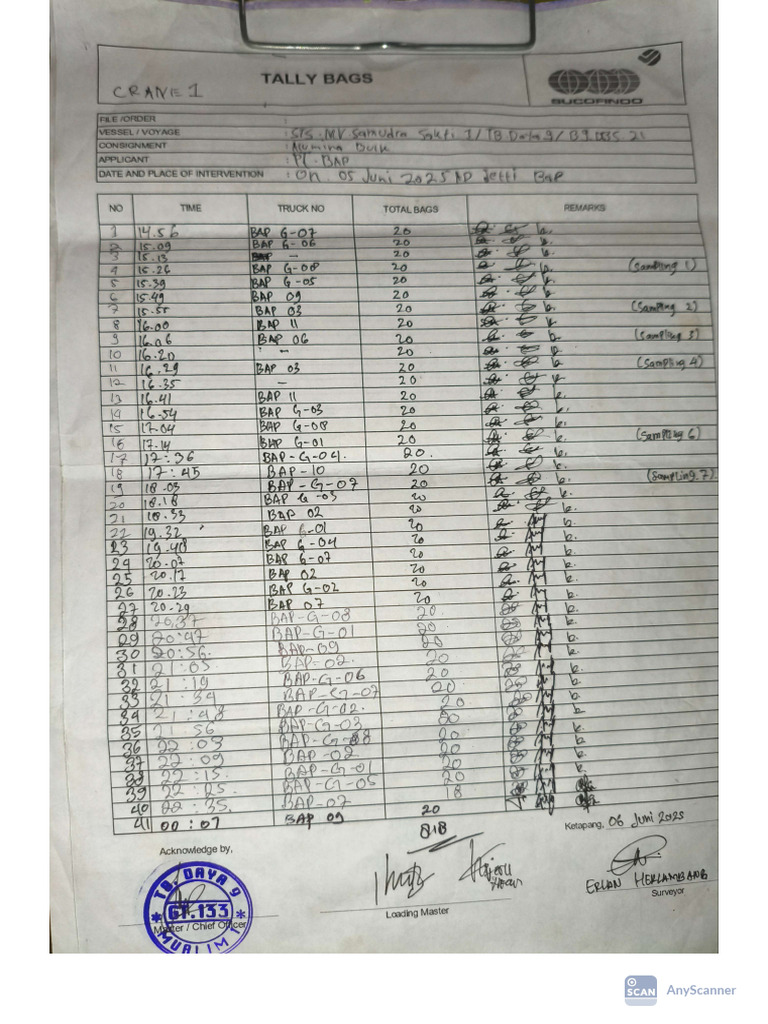 TALLY BAGS
CRANE 1
SUCOFINDO
FILE /ORDER :
VESSEL / VOYAGE : STS. MV Samudra Sakti I / TB Daya 9 / BG
CONSIGNMENT : Alumina Bulk
APPLICANT : PT. BAP
DATE AND PLACE OF INTERVENTION : On. 05 Juni 2025 AP Jetti BAP
NO TIME TRUCK NO TOTAL BAGS REMARKS
1 14.56 BAP G-07 20
2 15.09 BAP G-06 20
3 15.13 – 20
4 15.26 BAP G-08 20 (Sampling 1)
5 15.39 BAP G-05 20
6 15.49 BAP 09 20
7 15.55 BAP 03 20 (Sampling 2)
8 16.00 BAP 11 20
9 16.06 BAP 06 20 (Sampling 3)
10 16.20 – 20
11 16.29 BAP 03 20 (Sampling 4)
12 16.35 – 20
13 16.41 BAP 11 20
14 16.54 BAP G-03 20
15 17.04 BAP G-08 20
16 17.14 BAP G-01 20 (Sampling 6)
17 17:36 BAP-G-04. 20.
18 17:45 BAP-10 20
19 18.03 BAP-G-07 20 (Sampling.7)
20 18.18 BAP G-03 20
21 18.33 BAP 02 20
22 19.32 BAP G-01 20
23 19.48 BAP G-04 20
24 20.07 BAP G-07 20
25 20.17 BAP 02 20
26 20.23 BAP G-02 20
27 20.29 BAP 07 20
28 20.37 BAP-G-08 20
29 20:47 BAP-G-01 20
30 20:56. BAP-09 20
31 21:05 BAP-02. 20
32 21:19 BAP-G-06 20
33 21:34 BAP-G-07 20
34 21:48 BAP-G-02. 20
35 21:56 BAP-G-03 20
36 22:03 BAP-G-08 20
37 22:09 BAP-02 20
38 22:15. BAP-G-01 20
39 22:25. BAP-G-05 20
40 22:35. BAP-07 18
41 00:07 BAP 09 20
818
Ketapang, 06 Juni 2025
Acknowledge by,
TB. DAYA 9
GT.133
MUALIM 1
Master / Chief Officer
Loading Master
ERLAN HERLAMBANG
Surveyor
SCAN AnyScanner